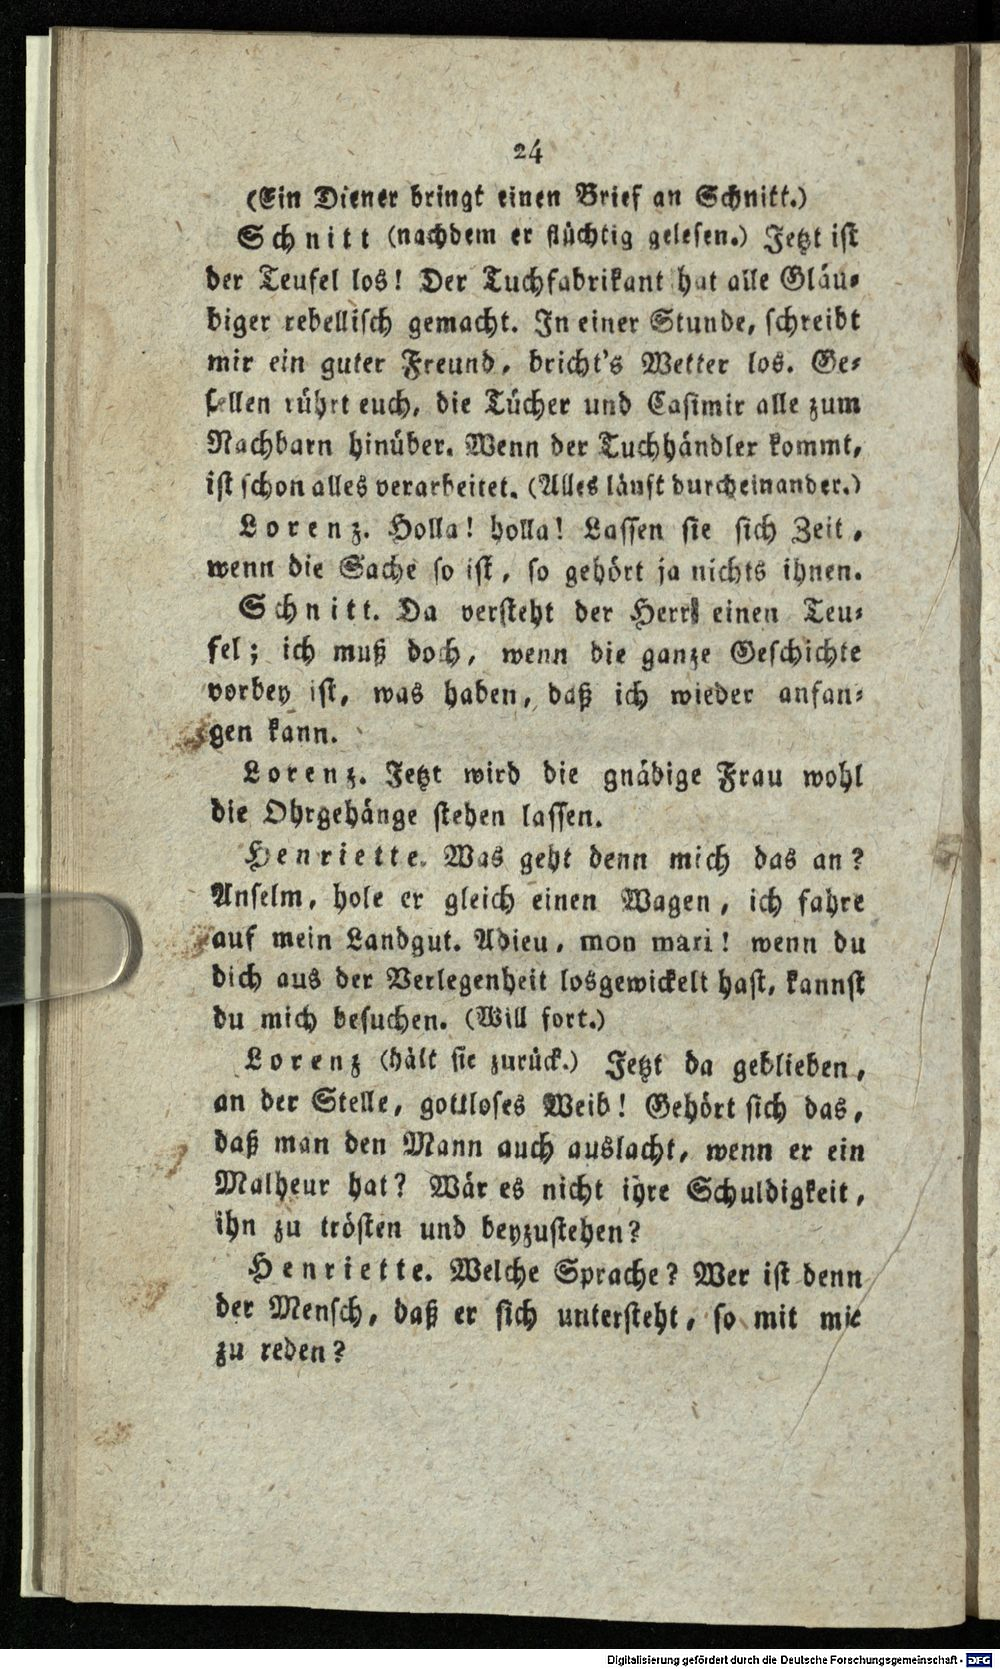 24
(Ein Diener bringt einen Brief an Schnitt.)
Schnitt (nachdem er flüchtig gelesen.) Jetzt ist
der Teufel los! Der Tuchfabrikant hat alle Gläu-
biger rebellisch gemacht. In einer Stunde, schreibt
mir ein guter Freund, bricht's Wetter los. Ge-
sellen rührt euch, die Tücher und Casimir alle zum
Nachbarn hinüber. Wenn der Tuchhändler kommt,
ist schon alles verarbeitet. (Alles läuft durcheinander.)
Lorenz. Holla! holla! Lassen sie sich Zeit,
wenn die Sache so ist, so gehört ja nichts ihnen.
Schnitt. Da versteht der Herr einen Teu-
fel; ich muß doch, wenn die ganze Geschichte
vorbey ist, was haben, daß ich wieder anfan-
gen kann.
Lorenz. Jetzt wird die gnädige Frau wohl
die Ohrgehänge stehen lassen.
Henriette. Was geht denn mich das an?
Anselm, hole er gleich einen Wagen, ich fahre
auf mein Landgut. Adieu, mon mari! wenn du
dich aus der Verlegenheit losgewickelt hast, kannst
du mich besuchen. (Will fort.)
Lorenz (hält sie zurück.) Jetzt da geblieben,
an der Stelle, gottloses Weib! Gehört sich das,
daß man den Mann auch auslacht, wenn er ein
Malheur hat? Wär es nicht ihre Schuldigkeit,
ihn zu trösten und beyzustehen?
Henriette. Welche Sprache? Wer ist denn
der Mensch, daß er sich untersteht, so mit mir
zu reden?
Digitalisierung gefördert durch die Deutsche Forschungsgemeinschaft - DFG